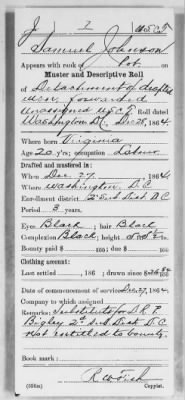 J 7 U.S.C.T.
Samuel Johnson
Appears with rank of Pvt. on
Muster and Descriptive Roll
of Detachment of drafted
men forwarded
Unassigned U.S.C.T. Roll dated
Washington D.C. Dec 28, 1864.
Where born Virginia
Age 20 yrs; occupation Labor
Drafted and mustered in:
When Dec. 27, 1864.
Where Washington, D.C.
Enrollment district 2d Sub Dist D.C.
Period 3 years.
Eyes Black; hair Black
Complexion Black; height
Bounty paid $ 100; due $ 100
Clothing account:
Last settled , 186 ; drawn since $ 100
Date of commencement of service Dec. 27, 1864.
Company to which assigned
Remarks: Substitute for D.R.P.
Bigley 2d Sub Dist. D.C.
Not entitled to bounty.
Book mark:
(356m) Copyist.